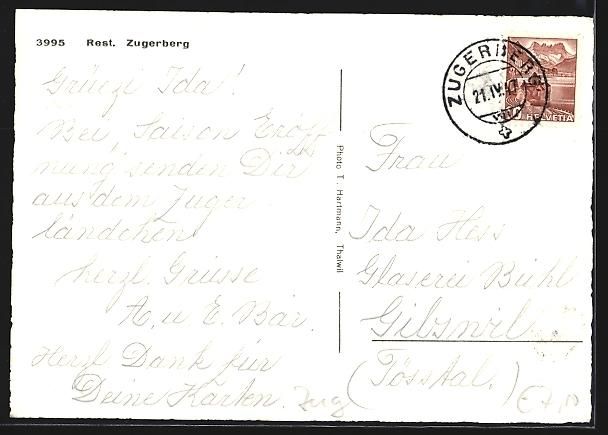 3995 Rest. Zugerberg
Grüezi Ida!
Bei Saison Eröff-
nung senden Dir
aus dem Zuger-
ländchen
herzl. Grüsse
A. u. E. Bär.
Herzl Dank für
Deine Karten.
Zug
Photo T. Hartmann, Thalwil
ZUGERBERG
21.IV.47
HELVETIA
Frau
Ida Hess
Glaserei Bühl
Gibswil
(Tösstal.)